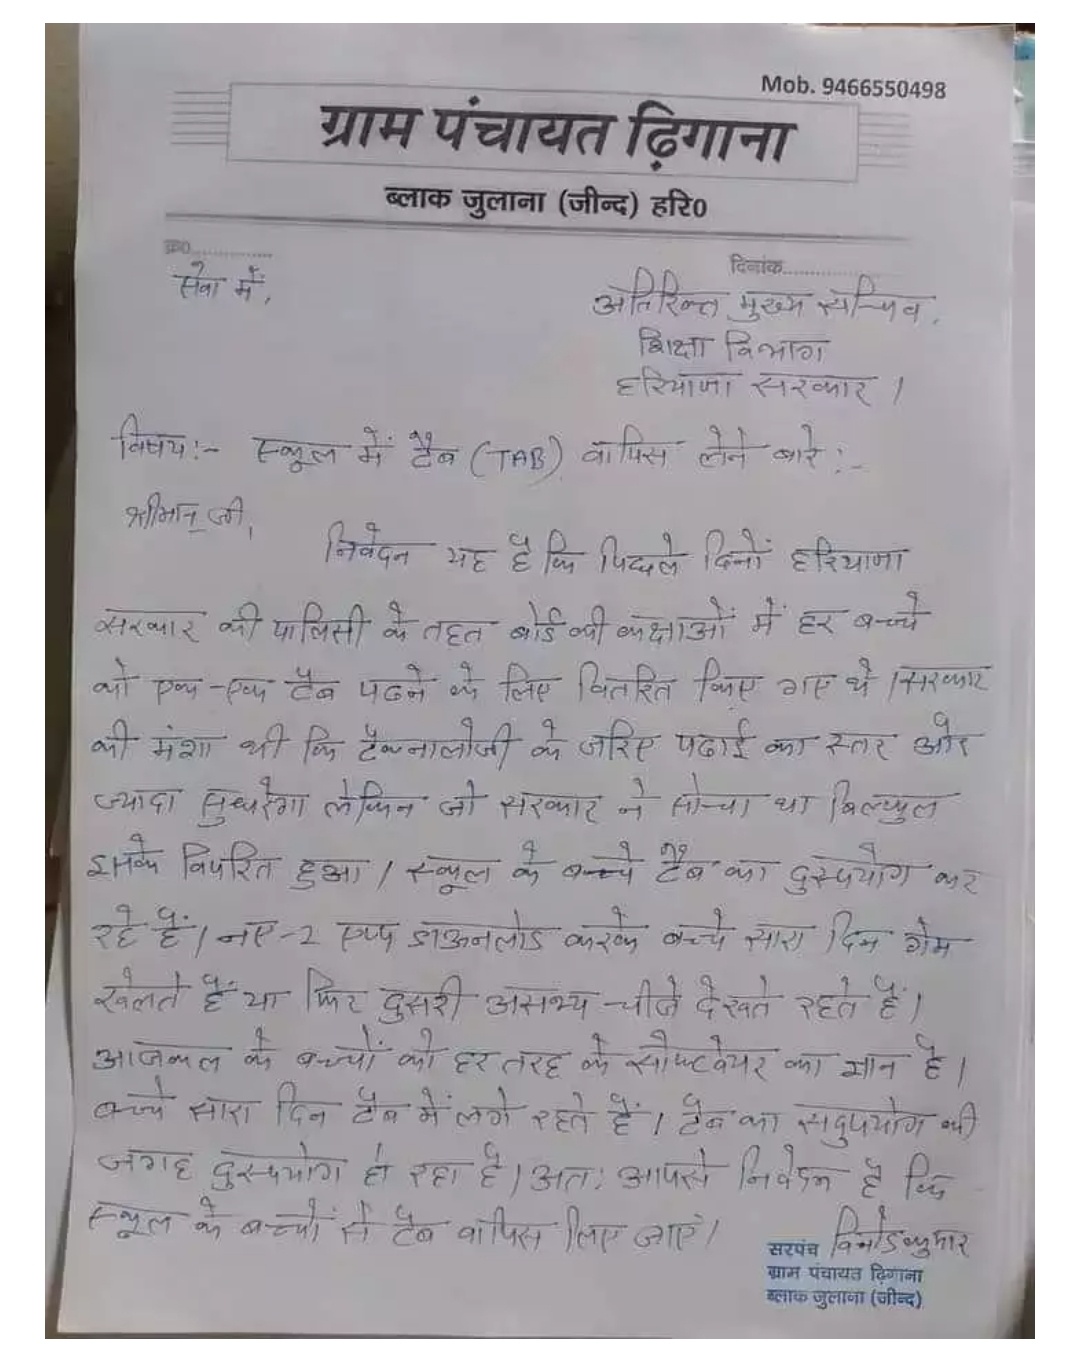 Mob. 9466550498
ग्राम पंचायत ढ़िगाना
ब्लाक जुलाना (जीन्द) हरि0
क्र0..............
दिनांक..............
सेवा में,
अतिरिक्त मुख्य सचिव,
शिक्षा विभाग
हरियाणा सरकार ।
विषय:- स्कूल में टैब (TAB) वापिस लेने बारे :-
श्रीमान् जी,
निवेदन यह है कि पिछले दिनों हरियाणा
सरकार की पालिसी के तहत बोर्ड की कक्षाओं में हर बच्चे
को एक-एक टैब पढने के लिए वितरित किए गए थे । सरकार
की मंशा थी कि टैक्नालोजी के जरिए पढाई का स्तर और
ज्यादा सुधरेगा लेकिन जो सरकार ने सोचा था बिल्कुल
इसके विपरित हुआ । स्कूल के बच्चे टैब का दुरूपयोग कर
रहे हैं । नए-2 एप्प डाऊनलोड करके बच्चे सारा दिन गेम
खेलते हैं या फिर दुसरी असभ्य चीजे देखते रहते हैं ।
आजकल के बच्चों को हर तरह के सौफ्टवेयर का ज्ञान है ।
बच्चे सारा दिन टैब में लगे रहते हैं । टैब का सदुपयोग की
जगह दुरूपयोग हो रहा है । अतः आपसे निवेदन है कि
स्कूल के बच्चों से टैब वापिस लिए जाएं ।
विनोद कुमार
सरपंच
ग्राम पंचायत ढ़िगाना
ब्लाक जुलाना (जीन्द)